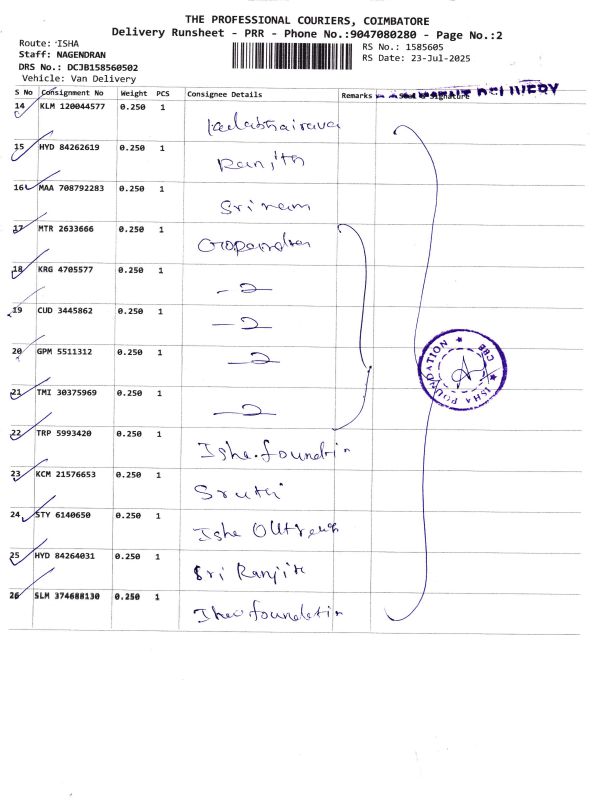 THE PROFESSIONAL COURIERS, COIMBATORE
Delivery Runsheet - PRR - Phone No.:9047080280 - Page No.:2
Route: ISHA
RS No.: 1585605
Staff: NAGENDRAN
RS Date: 23-Jul-2025
DRS No.: DCJB158560502
Vehicle: Van Delivery
S No Consignment No Weight PCS Consignee Details Remarks Signature DELIVERY
14 KLM 120044577 0.250 1
Kalabhairava
15 HYD 84262619 0.250 1
Ranjith
16 MAA 708792283 0.250 1
Sriram
17 MTR 2633666 0.250 1
18 KRG 4705577 0.250 1
- 2
19 CUD 3445862 0.250 1
- 2
20 GPM 5511312 0.250 1
- 2
21 TMI 30375969 0.250 1
- 2
ISHA FOUNDATION ★ CBE ★
22 TRP 5993420 0.250 1
Isha foundatin
23 KCM 21576653 0.250 1
Sruthi
24 STY 6140650 0.250 1
Isha Outreach
25 HYD 84264031 0.250 1
Sri Ranjit
26 SLM 374688130 0.250 1
Isha foundatin